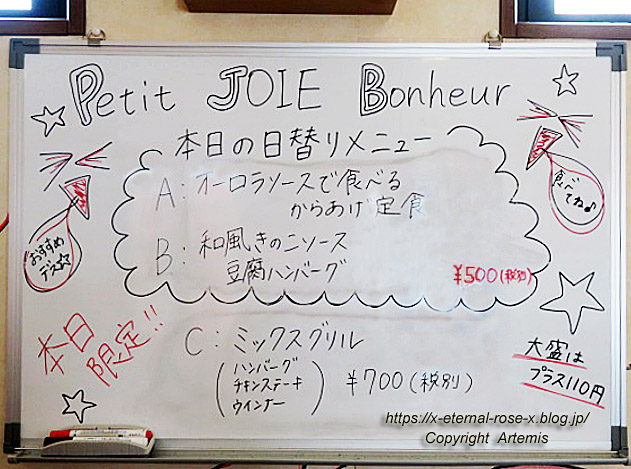 Petit JOIE Bonheur
本日の日替りメニュー
A:オーロラソースで食べる
からあげ定食
B:和風きのこソース
豆腐ハンバーグ
¥500(税別)
おすすめ
デス☆
食べ
てね♪
本日
限定!!
C:ミックスグリル
(ハンバーグ
チキンステーキ
ウインナー)
¥700(税別)
大盛は
プラス110円
https://x-eternal-rose-x.blog.jp/
Copyright Artemis